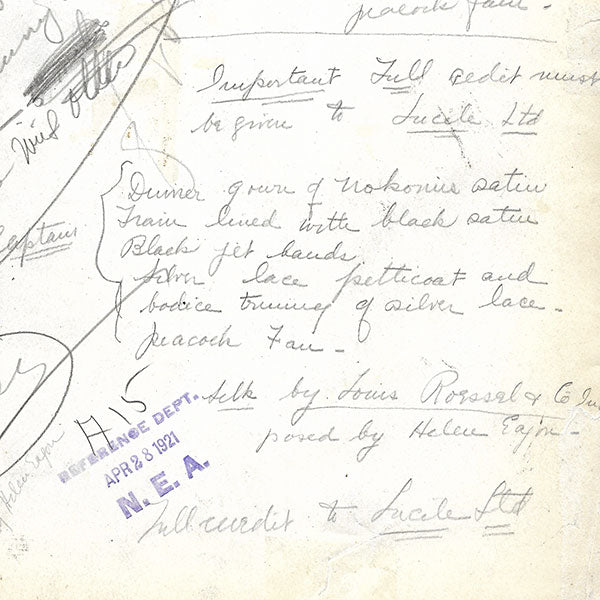 peacock fan -
Important Full credit must
be given to Lucile Ltd
Dinner gown of Nokomis satin
Train lined with black satin
Black jet bands
silver lace petticoat and
bodice trimming of silver lace -
peacock Fan -
Silk by Louis Roessel & Co Inc
posed by Helen Eagon -
Full credit to Lucile Ltd
other
Captains
A15
REFERENCE DEPT.
APR 28 1921
N. E. A.